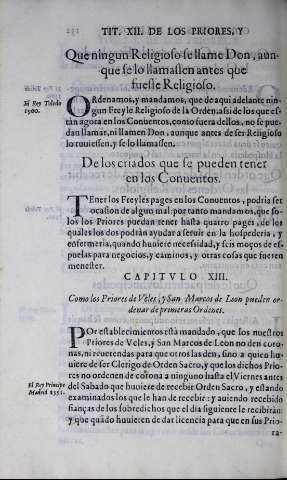 TIT. XII. DE LOS PRIORES, Y
Que ningun Religioso se llame Don, aun-
que se lo llamassen antes que
fuesse Religioso.
El Rey Toledo
1560.
ORdenamos, y mandamos, que de aqui adelante nin-
gun Freyle Religioso de la Orden, assi de los que es-
tán agora en los Conuentos, como fuera dellos, no se pue-
dan llamar, ni llamen Don, aunque antes de ser Religioso
lo tuuiessen, y se lo llamassen.
De los criados que se pueden tener
en los Conuentos.
TEner los Freyles pages en los Conuentos, podria ser
ocasion de algun mal: por tanto mandamos, que so-
los los Priores puedan tener hasta quatro pages, de los
quales los dos podrán ayudar a seruir en la hospederia, y
enfermeria, quando huuiere necessidad, y seis moços de es-
puelas para negocios, y caminos, y otras cosas que fueren
menester.
CAPITVLO XIII.
Como los Priores de Veles, y San Marcos de Leon pueden or-
denar de primeras Ordenes.
El Rey Principe
Madrid 1551.
POr establecimientos está mandado, que los nuestros
Priores de Veles, y San Marcos de Leon no den coro-
nas, ni reuerendas para que otros las den, sino a quien huuie-
re de ser Clerigo de Orden Sacro, y que los dichos Prio-
res no ordenen de corona a ninguno hasta el Viernes antes
del Sabado que huuiere de recebir Orden Sacro, y estando
examinados los que le han de recebir: y auiendo recebido
fianças de los sobredichos que el dia siguiente le recibiràn:
y que quãdo huuieren de dar licencia para que en sus Prio-
ra-